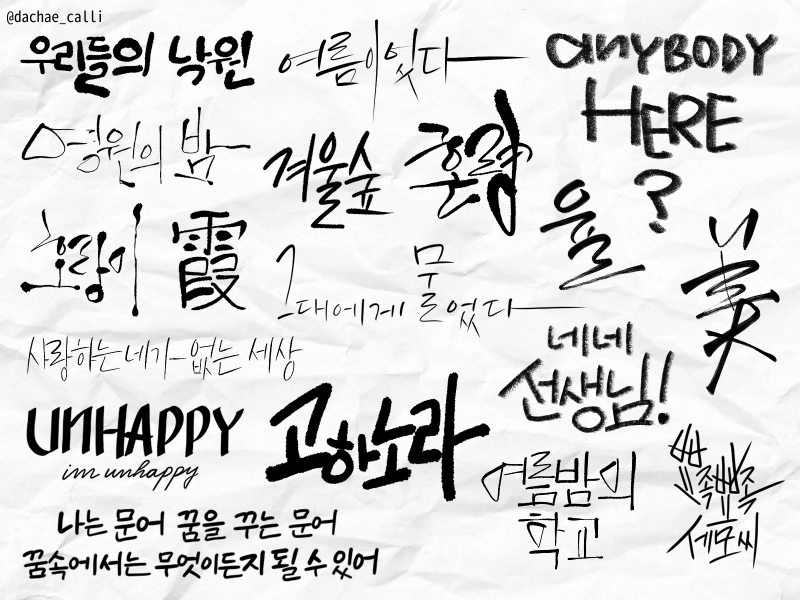 @dachae_calli
우리들의 낙원
여름이었다
anyBODY
HERE
?
영원의 밤
겨울숲
호랑이
霞
율
美
그대에게
물었다
사랑하는 네가 없는 세상
네네
선생님!
UNHAPPY
im unhappy
고하노라
여름밤의
학교
뾰족뾰족
세모씨
나는 문어 꿈을 꾸는 문어
꿈속에서는 무엇이든지 될 수 있어